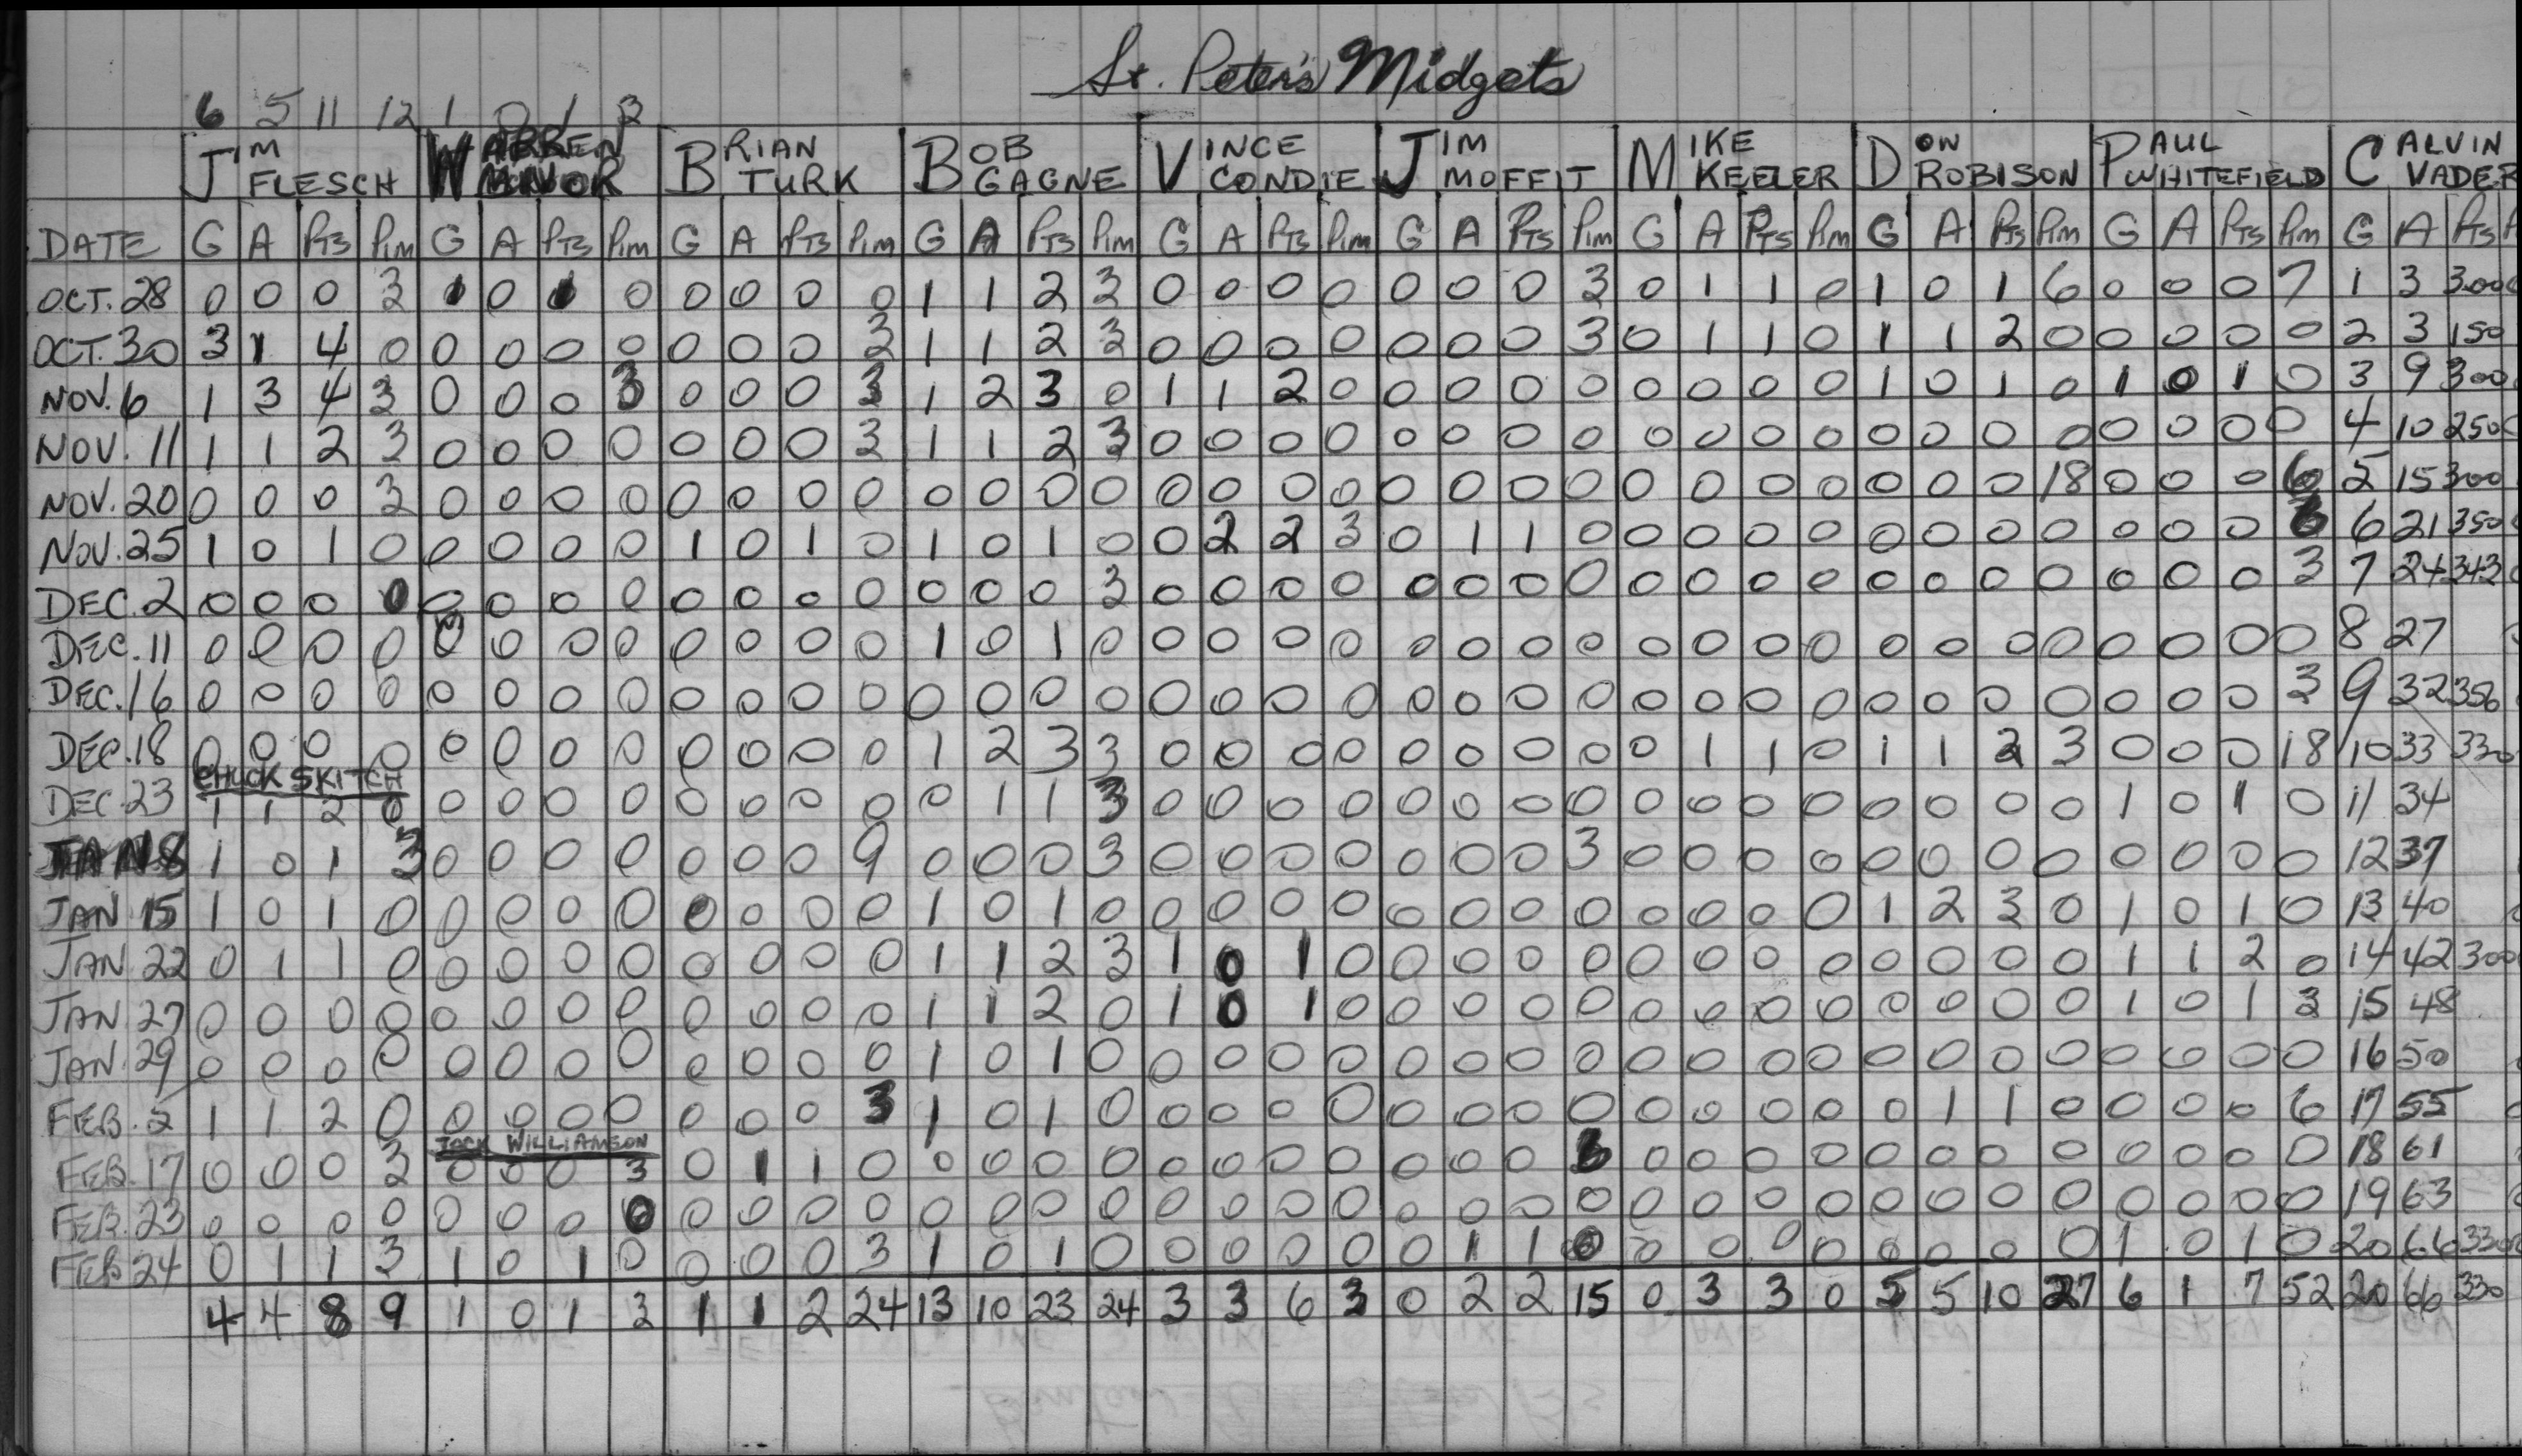 St. Peter's Midgets
6 5 11 12 1 0 1 3
JIM FLESCH WARREN MINOR BRIAN TURK BOB GAGNE VINCE CONDIE JIM MOFFIT MIKE KEELER DON ROBISON PAUL WHITEFIELD CALVIN VADER
DATE G A PTS PIM G A PTS PIM G A PTS PIM G A PTS PIM G A PTS PIM G A PTS PIM G A PTS PIM G A PTS PIM G A PTS PIM G A PTS P
OCT. 28 0 0 0 3 1 0 1 0 0 0 0 0 1 1 2 3 0 0 0 0 0 0 0 3 0 1 1 0 1 0 1 6 0 0 0 7 1 3 3.00
OCT. 30 3 1 4 0 0 0 0 0 0 0 0 3 1 1 2 3 0 0 0 0 0 0 0 3 0 1 1 0 1 1 2 0 0 0 0 0 2 3 150
NOV. 6 1 3 4 3 0 0 0 3 0 0 0 3 1 2 3 0 1 1 2 0 0 0 0 0 0 0 0 0 1 0 1 0 1 0 1 0 3 9 300
NOV. 11 1 1 2 3 0 0 0 0 0 0 0 3 1 1 2 3 0 0 0 0 0 0 0 0 0 0 0 0 0 0 0 0 0 0 0 0 4 10 250
NOV. 20 0 0 0 3 0 0 0 0 0 0 0 0 0 0 0 0 0 0 0 0 0 0 0 0 0 0 0 0 0 0 0 18 0 0 0 6 5 15 300
NOV. 25 1 0 1 0 0 0 0 0 1 0 1 0 1 0 1 0 0 2 2 3 0 1 1 0 0 0 0 0 0 0 0 0 0 0 0 6 21 350
DEC. 2 0 0 0 0 0 0 0 0 0 0 0 0 0 0 0 3 0 0 0 0 0 0 0 0 0 0 0 0 0 0 0 0 0 0 0 3 7 24 343
DEC. 11 0 0 0 0 0 0 0 0 0 0 0 0 1 0 1 0 0 0 0 0 0 0 0 0 0 0 0 0 0 0 0 0 0 0 0 0 8 27
DEC. 16 0 0 0 0 0 0 0 0 0 0 0 0 0 0 0 0 0 0 0 0 0 0 0 0 0 0 0 0 0 0 0 0 0 0 0 3 9 32 356
DEC. 18 0 0 0 0 0 0 0 0 0 0 0 0 1 2 3 3 0 0 0 0 0 0 0 0 0 1 1 0 1 1 2 3 0 0 0 18 10 33 330
CHUCK SKITCH
DEC. 23 1 1 2 0 0 0 0 0 0 0 0 0 0 1 1 3 0 0 0 0 0 0 0 0 0 0 0 0 0 0 0 0 1 0 1 0 11 34
JAN 8 1 0 1 3 0 0 0 0 0 0 0 9 0 0 0 3 0 0 0 0 0 0 0 3 0 0 0 0 0 0 0 0 0 0 0 0 12 37
JAN 15 1 0 1 0 0 0 0 0 0 0 0 0 1 0 1 0 0 0 0 0 0 0 0 0 0 0 0 0 1 2 3 0 1 0 1 0 13 40
JAN 22 0 1 1 0 0 0 0 0 0 0 0 0 1 1 2 3 1 0 1 0 0 0 0 0 0 0 0 0 0 0 0 0 1 1 2 0 14 42 300
JAN 27 0 0 0 0 0 0 0 0 0 0 0 0 1 1 2 0 1 0 1 0 0 0 0 0 0 0 0 0 0 0 0 0 1 0 1 3 15 48
JAN. 29 0 0 0 0 0 0 0 0 0 0 0 0 1 0 1 0 0 0 0 0 0 0 0 0 0 0 0 0 0 0 0 0 0 0 0 0 16 50
FEB. 5 1 1 2 0 0 0 0 0 0 0 0 3 1 0 1 0 0 0 0 0 0 0 0 0 0 0 0 0 0 1 1 0 0 0 0 6 17 55
JOCK WILLIAMSON
FEB. 17 0 0 0 3 0 0 0 3 0 1 1 0 0 0 0 0 0 0 0 0 0 0 0 0 0 0 0 0 0 0 0 0 0 0 0 18 61
FEB. 23 0 0 0 0 0 0 0 0 0 0 0 0 0 0 0 0 0 0 0 0 0 0 0 0 0 0 0 0 0 0 0 0 0 0 0 0 19 63
FEB 24 0 1 1 3 1 0 1 0 0 0 0 3 1 0 1 0 0 0 0 0 0 1 1 0 0 0 0 0 0 0 0 0 1 0 1 0 20 66 330
4 4 8 9 1 0 1 3 1 1 2 24 13 10 23 24 3 3 6 3 0 2 2 15 0 3 3 0 5 5 10 27 6 1 7 52 20 66 330